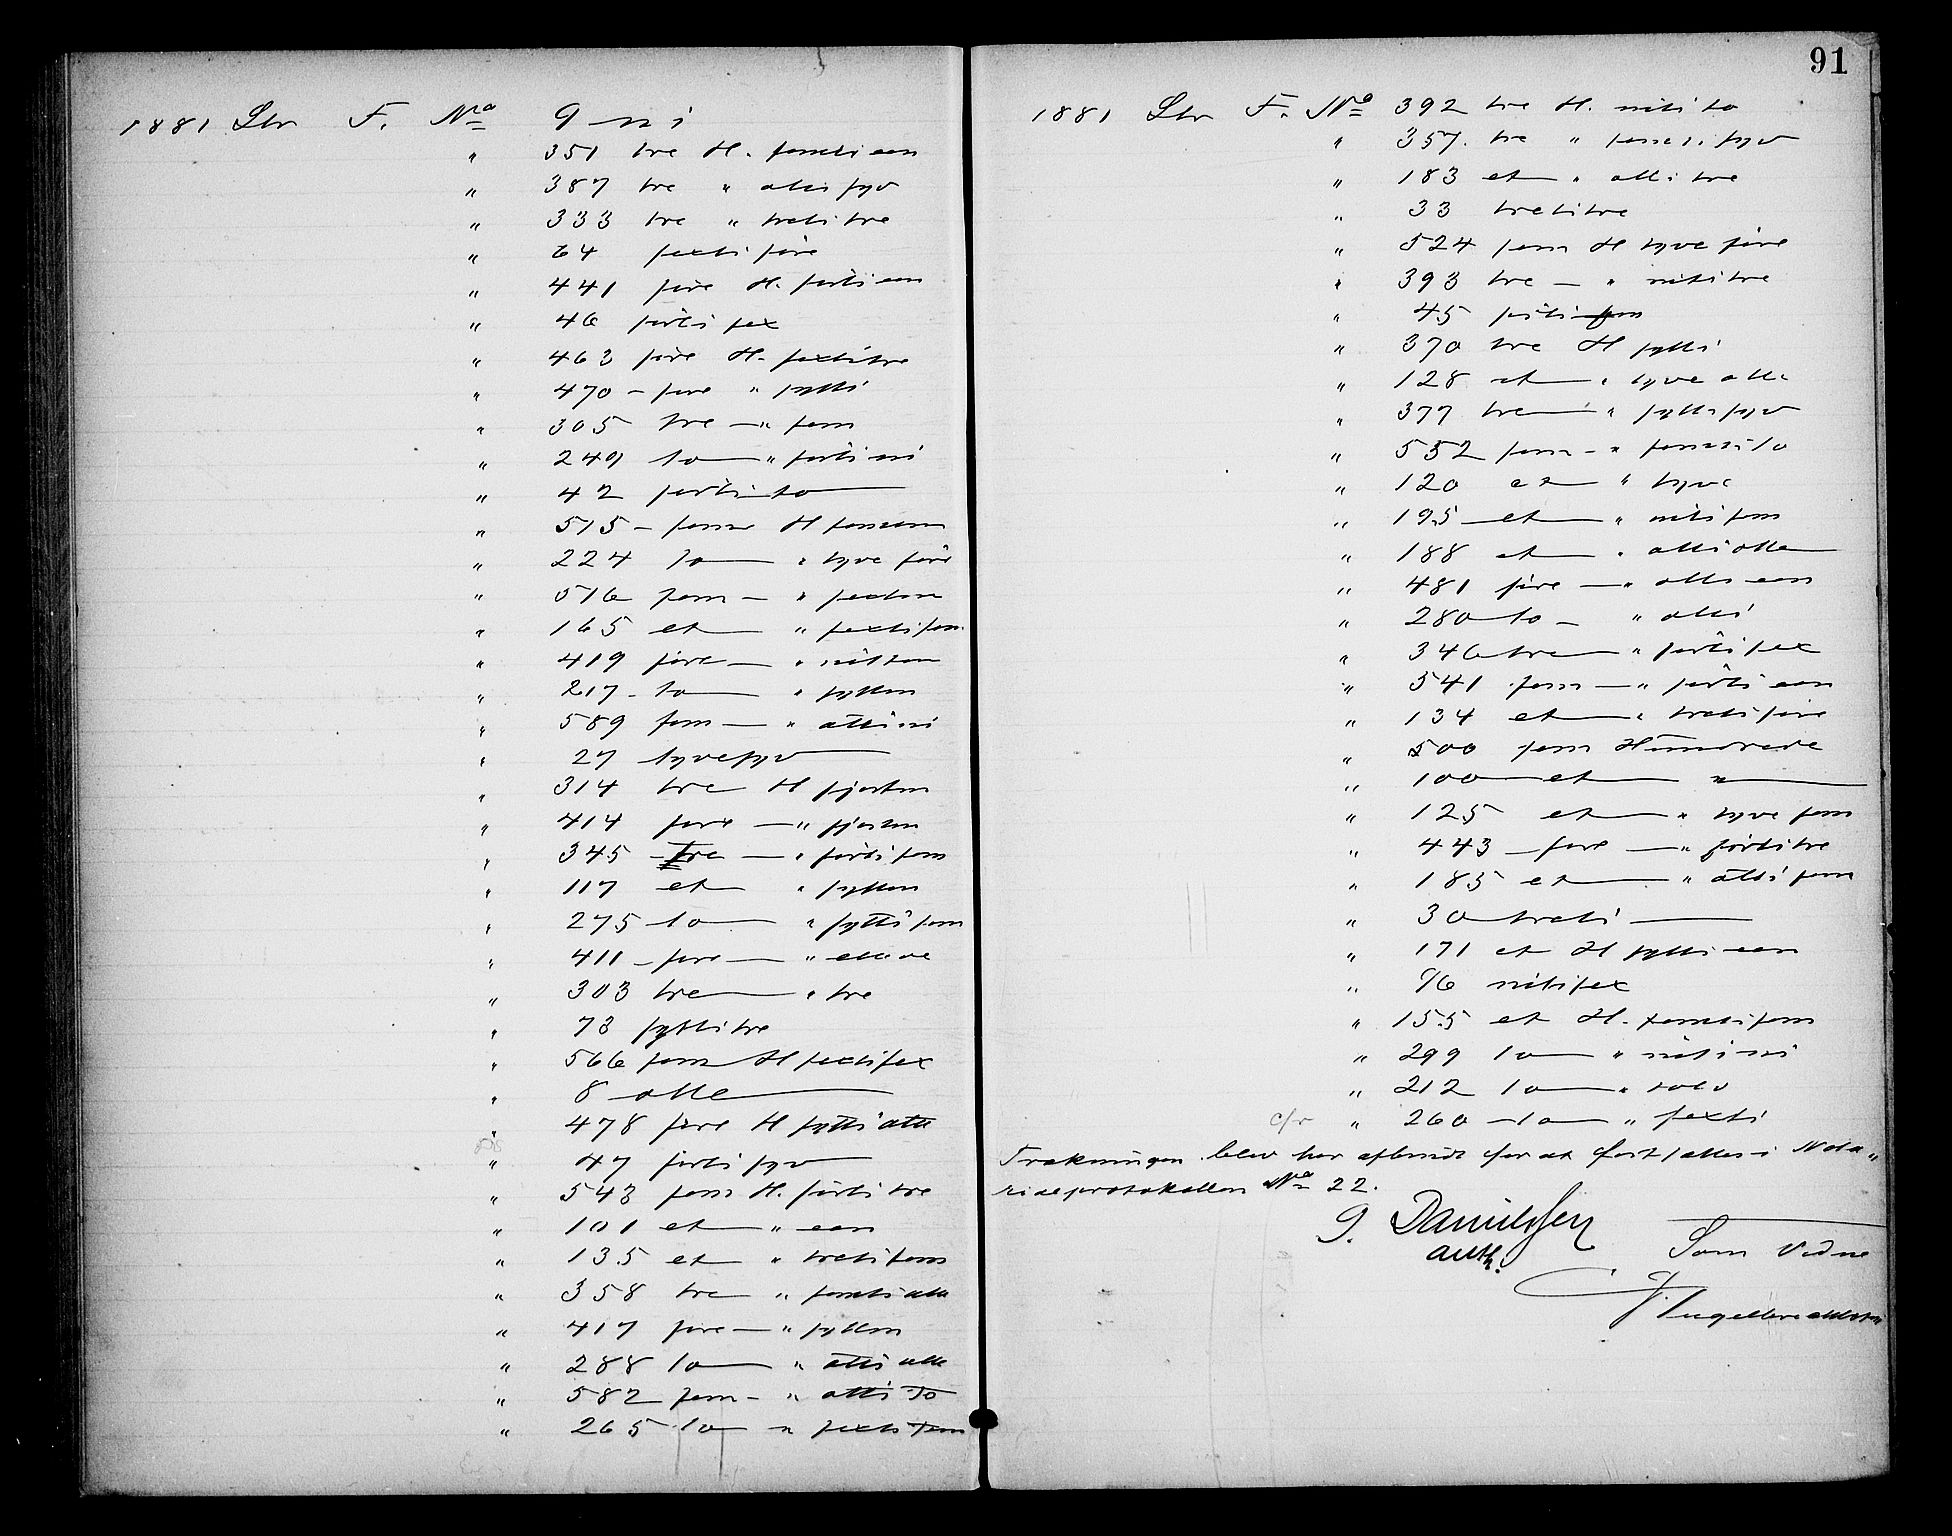 1881 Ltr F. No 9 ni
" 351 tre H. femti een
" 387 tre " otti syv
" 333 tre " treti tre
" 64 sexti fire
" 441 fire H. förti een
" 46 förti sex
" 463 fire H. sexti tre
" 470 – fire " sytti
" 305 tre — " fem
" 249 to — " förti ni
" 42 förti to
" 515 – fem H femten
" 224 to — " tyve fire
" 516 fem — " sexten
" 165 et — " sexti fem
" 419 fire — " nitten
" 217 – to — " sytten
" 589 fem — " otti ni
" 27 tyvesyv
" 314 tre H fjorten
" 414 fire — " fjorten
" 345 – tre — " förti fem
" 117 et " sytten
" 275 to — " sytti fem
" 411 – fire — " elleve
" 303 tre — " tre
" 73 sytti tre
" 566 fem H sexti sex
" 8 otte
" 478 fire H sytti otte
" 47 förti syv
" 543 fem H. förti tre
" 101 et " een
" 135 et " treti fem
" 358 tre " femti otte
" 417 fire — " sytten
" 288 to — " otti otte
" 582 fem – " otti to
" 265 to " sexti fem
91
1881 Ltr F. No 392 tre H. niti to
" 357. tre " femti syv
" 183 et " otti tre
" 33 treti tre
" 524 fem H tyve fire
" 393 tre — " niti tre
" 45 förti fem
" 370 tre H sytti
" 128 et — " tyve otte
" 377 tre — " sytti syv
" 552 fem – " femti to
" 120 et " tyve
" 195 – et — " niti fem
" 188 et — " otti otte
" 481 fire — " otti een
" 280 to – " otti
" 346 tre — " förti sex
" 541 fem — " förti een
" 134 et — " treti fire
" 500 fem Hundrede
" 100 et — "
" 125 et — " tyve fem
" 443 – fire — " förti tre
" 185 et — " otti fem
" 30 treti
" 171 et H sytti een
" 96 niti sex
" 155 et H. femti fem
" 299 to — " niti ni
" 212 to — " tolv
" 260 – to — " sexti
Trækningen blev her afbrudt for at fortsættes i Nota"
rialprotokollen No 22.
G. Danielsen
auth.
Som Vidne
Engelbrechtsen